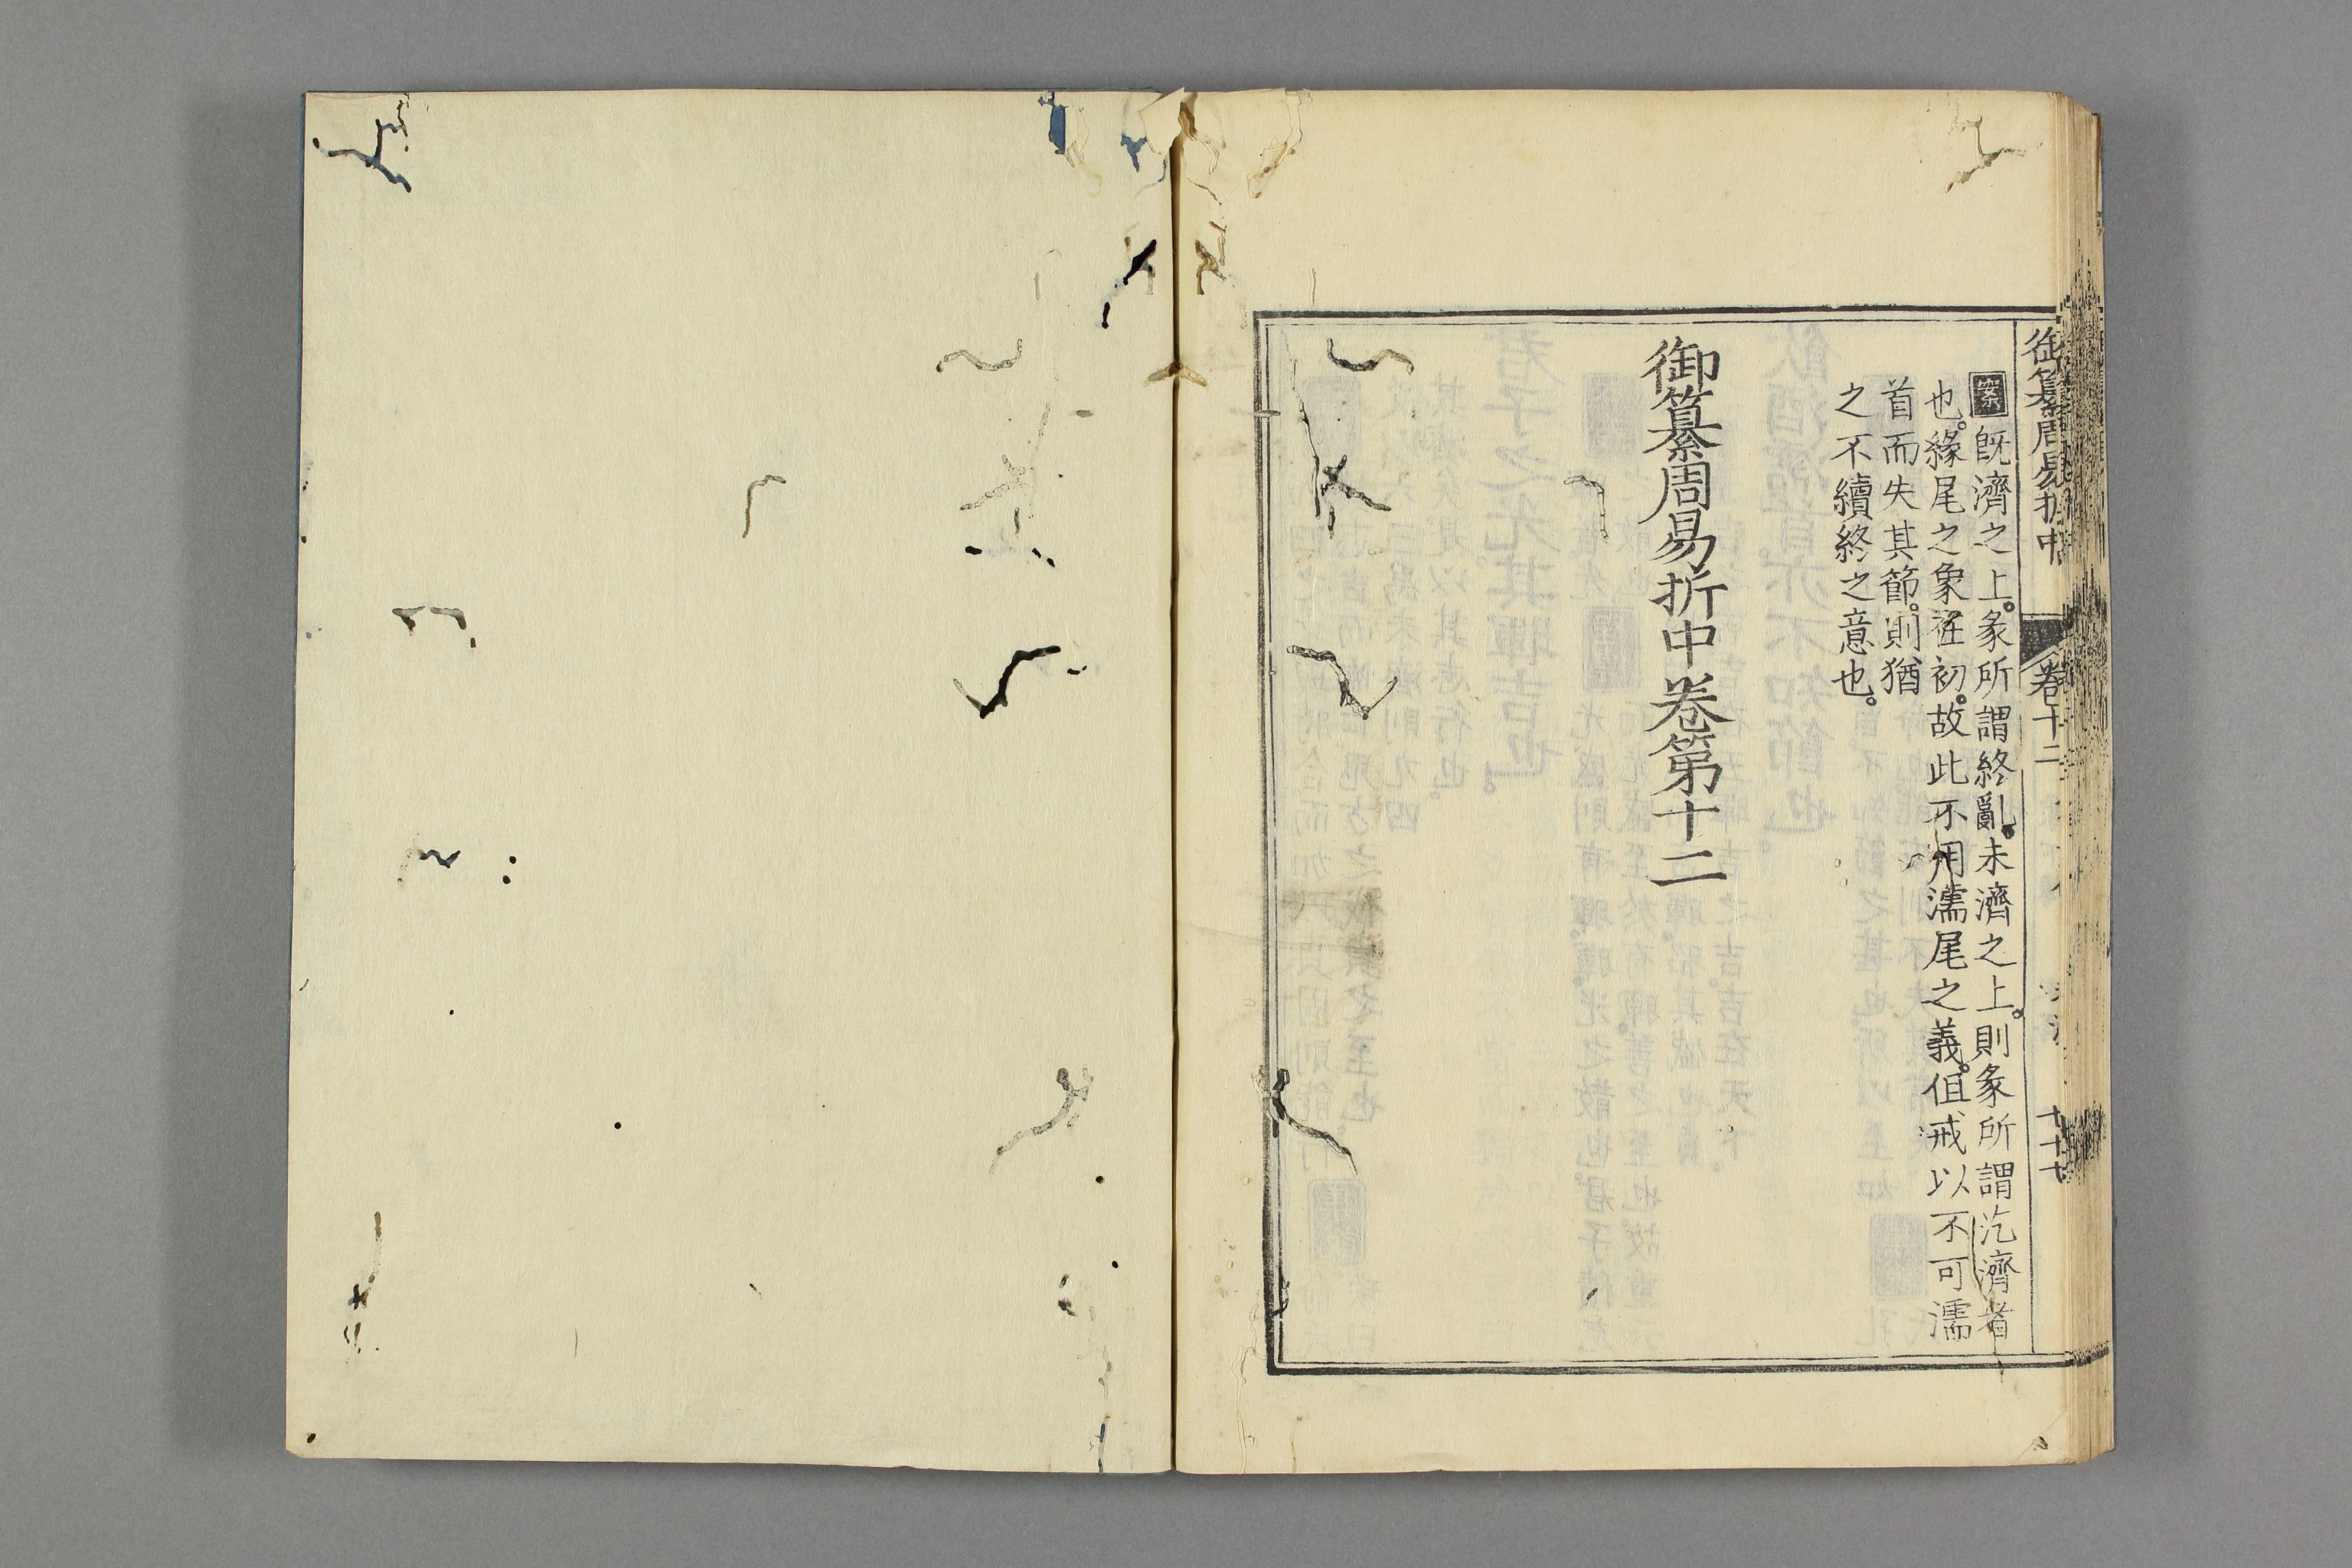 御纂周易折中 卷十二
案既濟之上。彖所謂終亂。未濟之上。則彖所謂汔濟者
也。緣尾之象在初。故此不用濡尾之義。但戒以不可濡
首而失其節。則猶
之不續終之意也。
御纂周易折中卷第十二